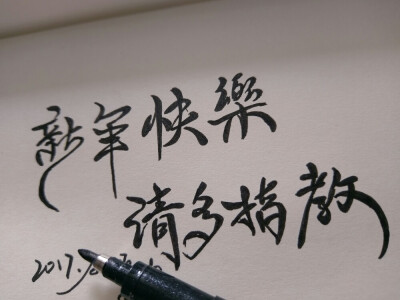 新年快樂
请多指教
2017.